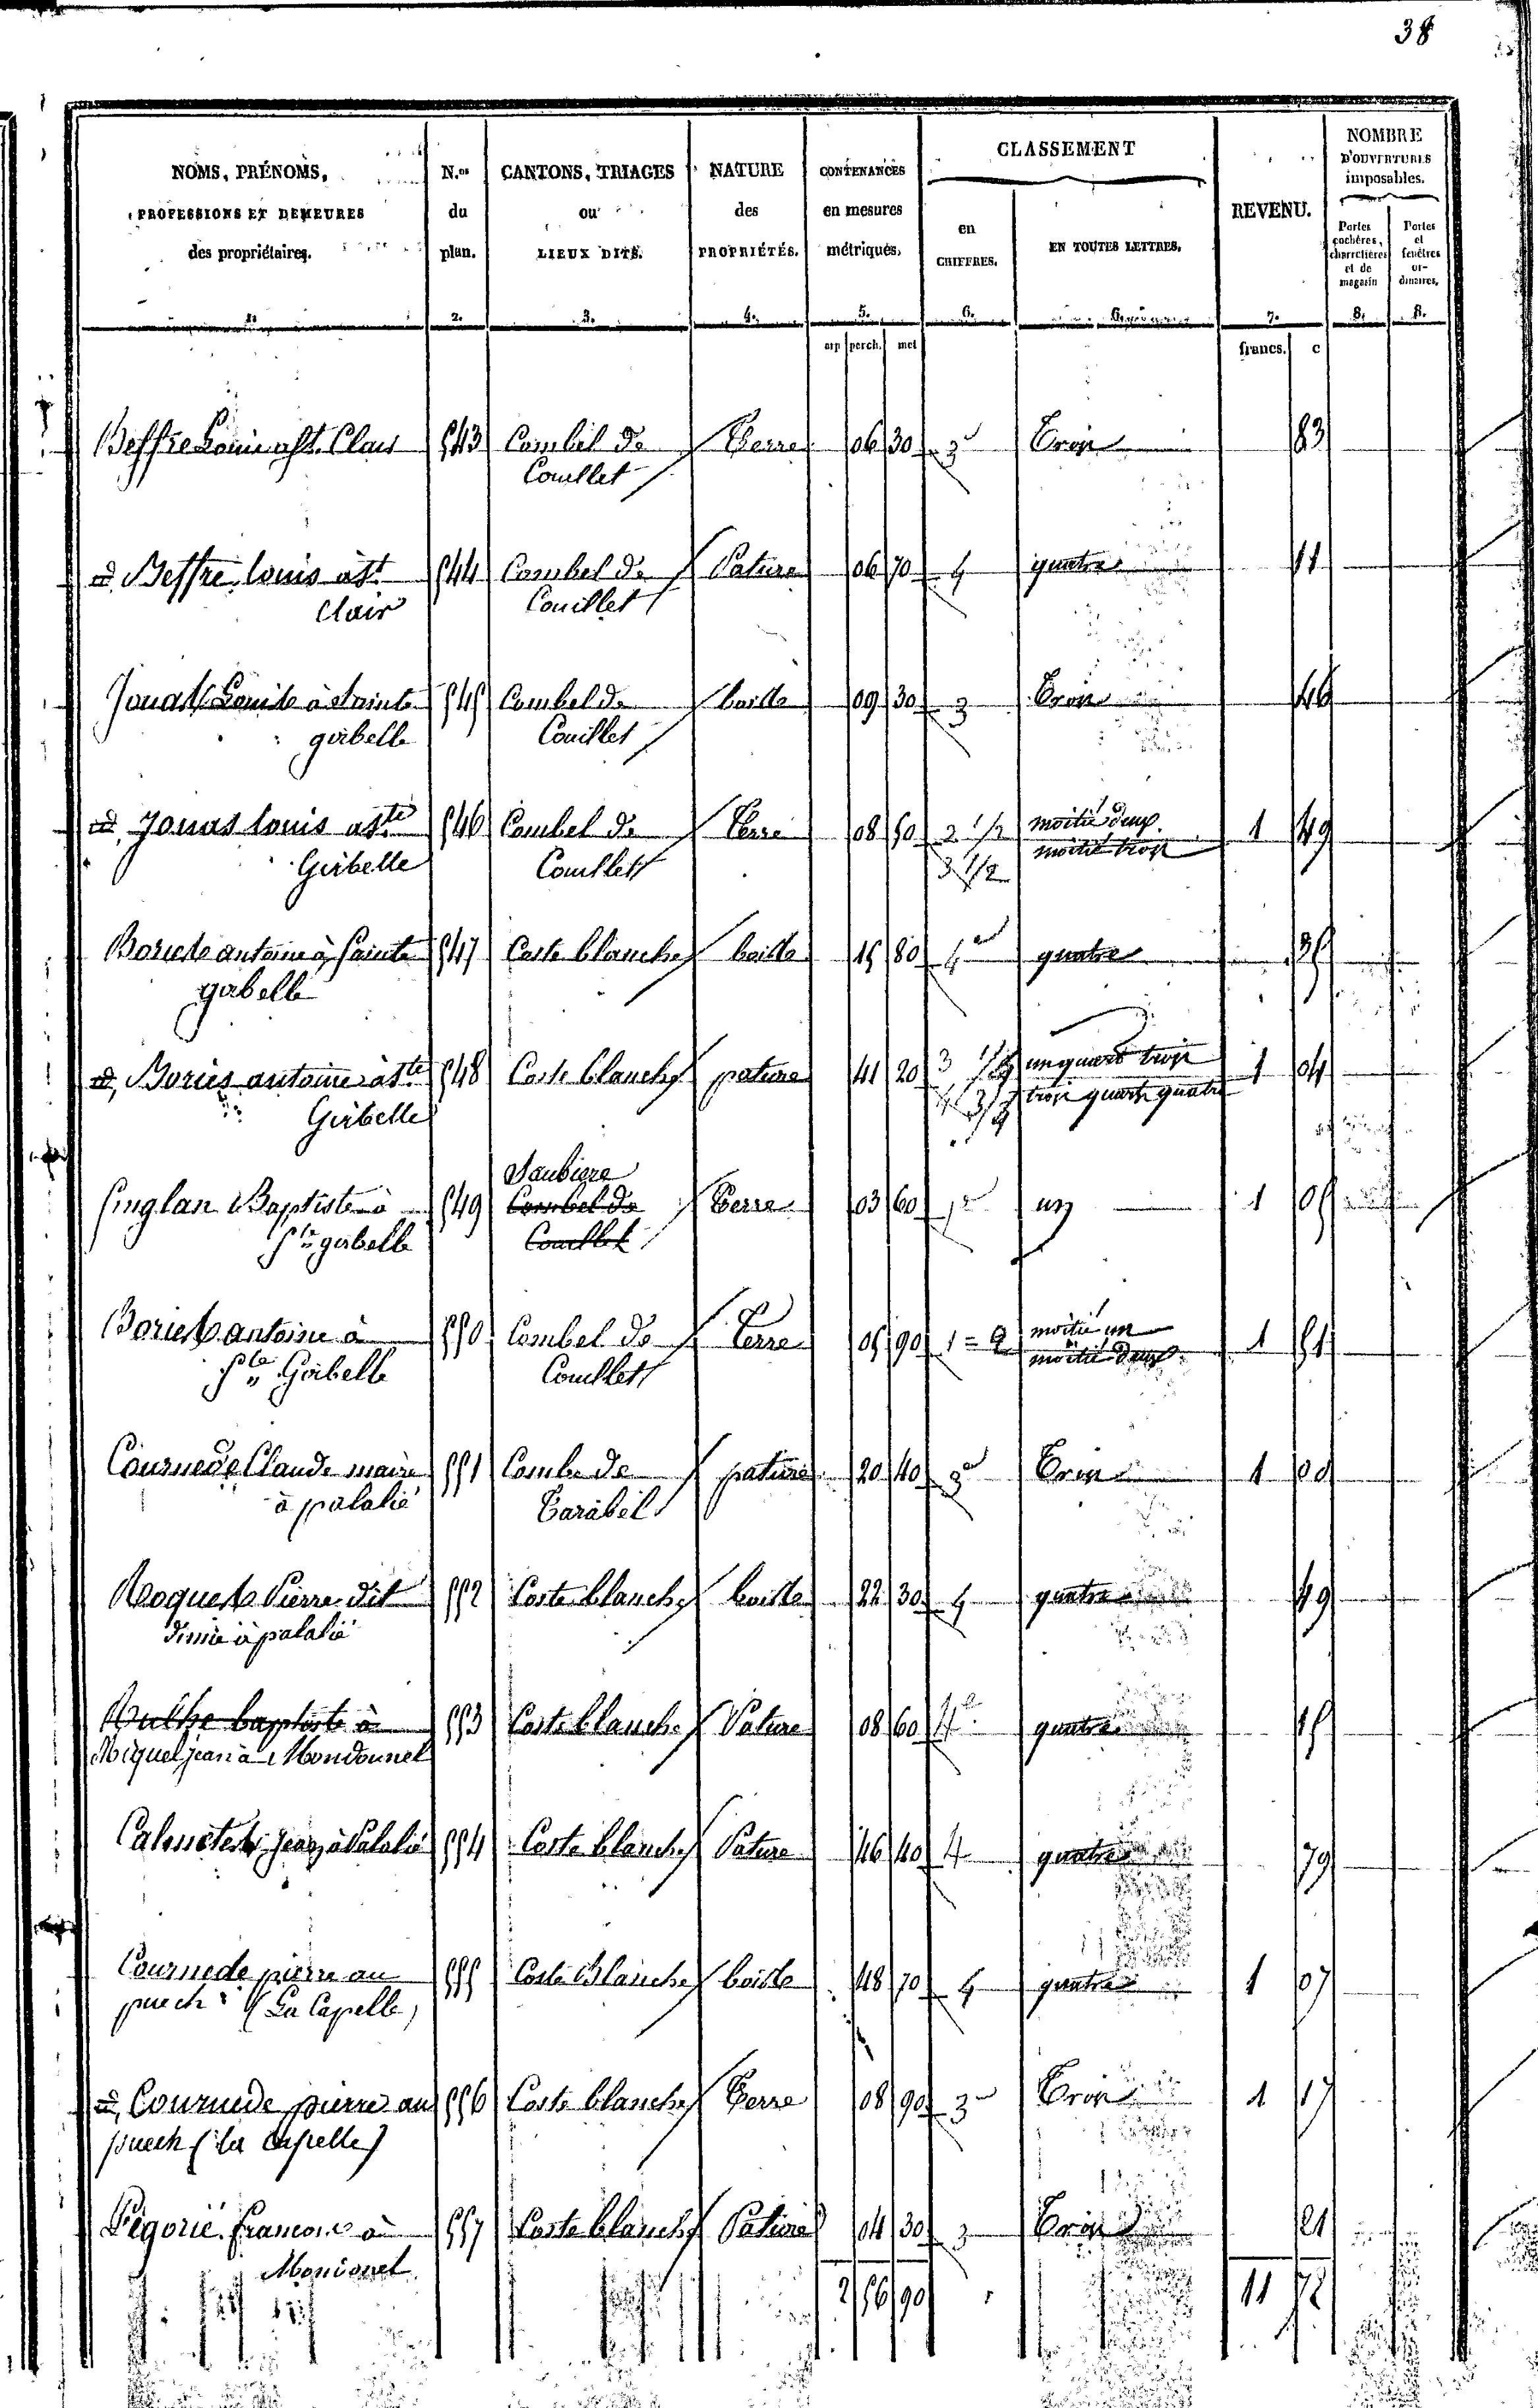 38
NOMS, PRÉNOMS,
PROFESSIONS ET DEMEURES
des propriétaires.
1.
N.os
du
plan.
2.
CANTONS, TRIAGES
ou
LIEUX DITS.
3.
NATURE
des
PROPRIÉTÉS.
4.
CONTENANCES
en mesures
métriques.
5.
CLASSEMENT
en
CHIFFRES.
6.
EN TOUTES LETTRES.
6.
REVENU.
7.
NOMBRE
D'OUVERTURES
imposables.
Portes
cochères,
charretières
et de
magasin
8.
Portes
et
fenêtres
or-
dinaires.
8.
arp perch. met francs. c
Beffre Louis a St. Clair 543 Combel de Terre 06 30 3 Trois 83
Couillet
id. Beffre louis à St 544 Combel de Pature 06 70 4 quatre 11
Clair Couillet
Jouas Louis à Sainte 545 Combel de 09 30 3 Trois 46
girbelle Couillet
id. Jouas louis a Ste 546 Combel de Terre 08 50 2 1/2 moitié deux 1 49
Girbelle Couillet 3 1/2 moitié trois
Bories antoine à Sainte 547 Coste blanche 15 80 4 quatre 35
girbelle
id. Bories antoine à Ste 548 Coste blanche pature 41 20 3 1/4 un quart trois 1 04
Girbelle 4 3/4 trois quarts quatre
Saubiere
Singlan Baptiste à 549 Combel de Terre 03 60 1 un 1 05
Ste girbelle Couillet
Bories antoine à 550 Combel de Terre 05 90 1 = 2 moitié un 1 51
Ste Girbelle Couillet moitié deux
Cournede Claude maire 551 Combe de pature 20 40 3 Trois 1 00
à palalié Tarabel
Roques Pierre dit 552 Coste blanche 22 30 4 quatre 49
à palalié
baptiste à 553 Coste blanche Pature 08 60 4 quatre 15
Miquel jean à Mondounel
Calmetes jean à Palalié 554 Coste blanche Pature 46 40 4 quatre 79
Cournede pierre au 555 Coste Blanche 48 70 4 quatre 1 07
puech (La Capelle)
id. Cournede pierre au 556 Coste blanche Terre 08 90 3 Trois 1 17
puech (la Capelle)
Pégorié francois à 557 Coste blanche Pature 04 30 3 Trois 21
2 56 90 11 72